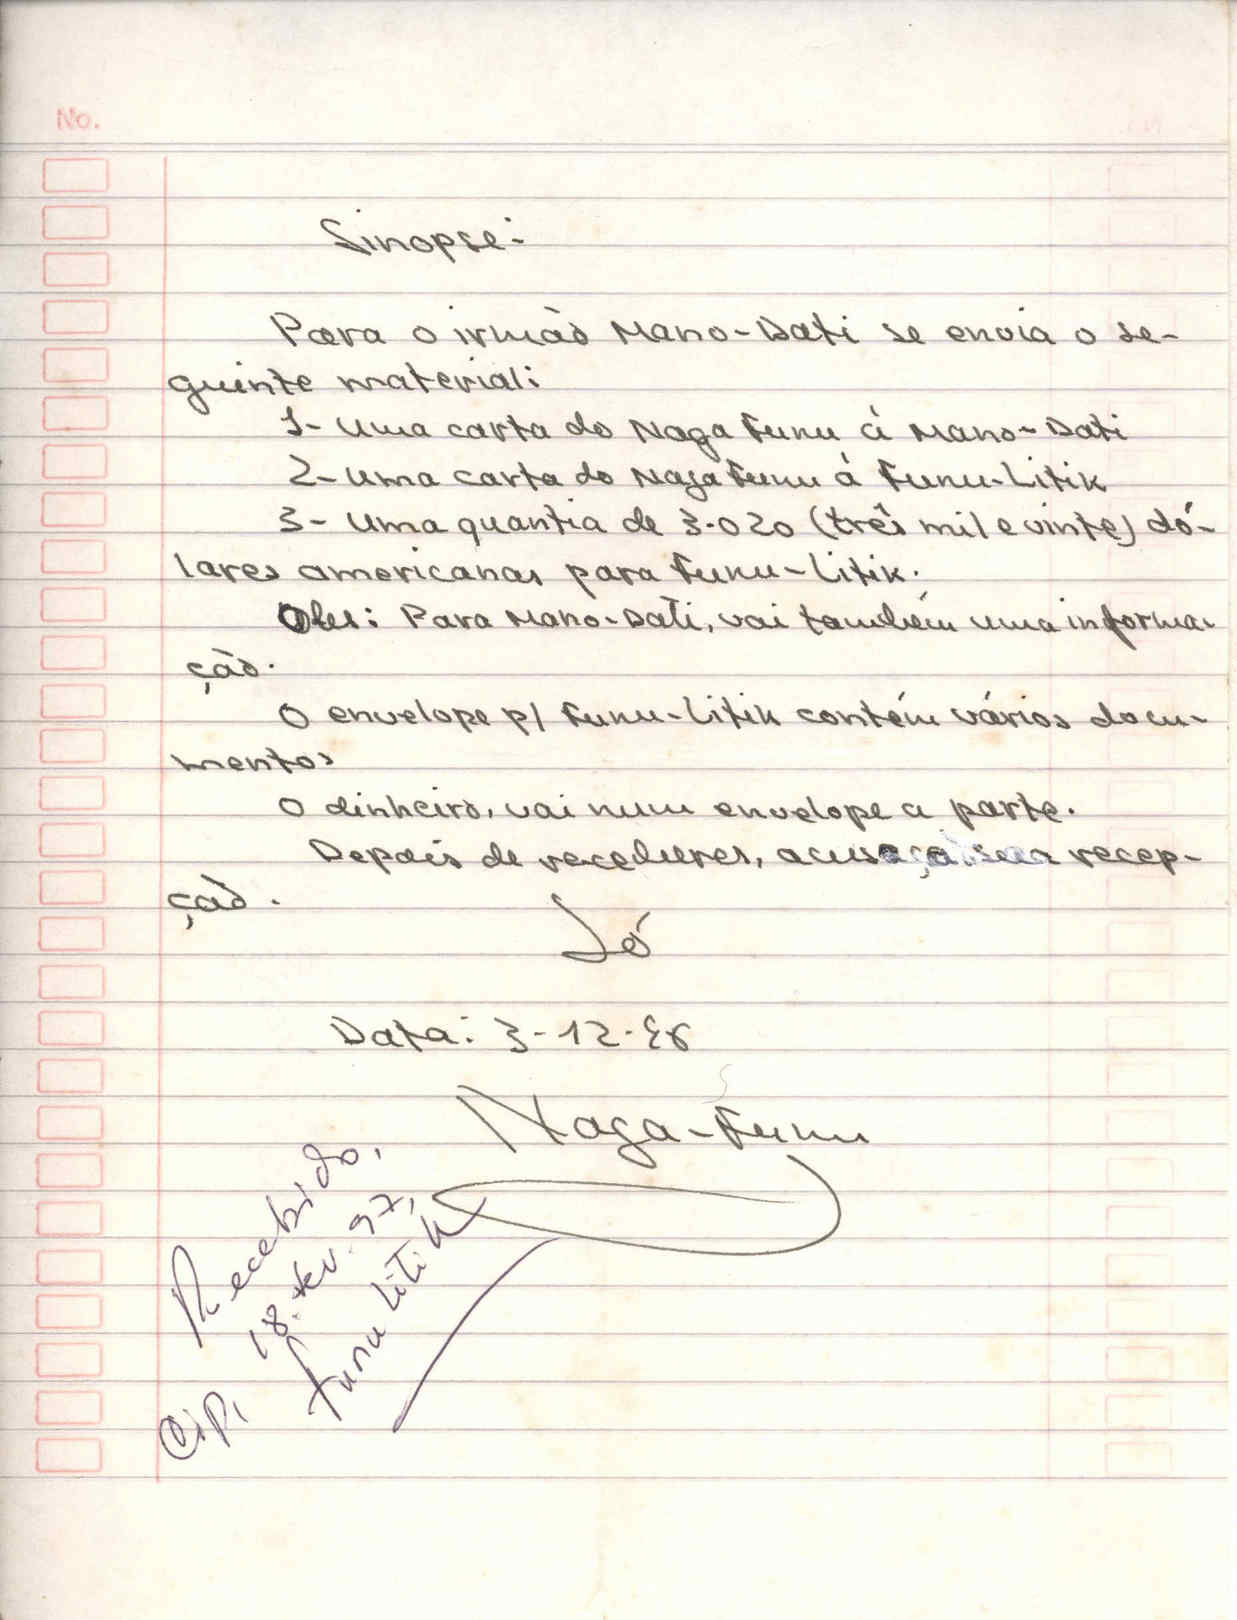 No.
Sinopse:
Para o irmão Mano-Dati se envia o se-
guinte material:
1- Uma carta do Naga Funu à Mano-Dati
2- Uma carta do Naga Funu á Funu-Litik
3- Uma quantia de 3.020 (três mil e vinte) dó-
lares americanas para Funu-Litik.
Obs: Para Mano-Dati, vai também uma informa-
ção.
O envelope p/ Funu-Litik contém vários docu-
mentos
O dinheiro, vai num envelope a parte.
Depois de receberes, acusa a sua recep-
ção.
Só
Data: 3-12-96
Naga-Funu
Recebido,
18.fev.97,
Funu Litik